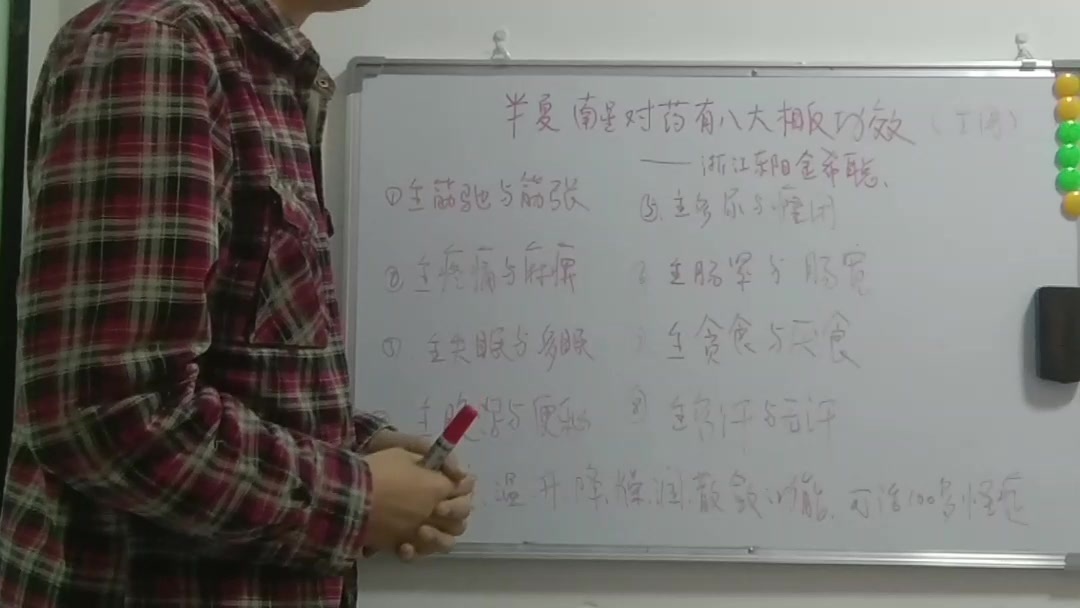 半夏 南星对药有八大相反功效（上海）
——浙江东阳金希聪.
①主筋弛与筋张
⑤.主多尿与癃闭
②主疼痛与麻痹
主肠罢与肠宽
③ 主失眠与多眠
主贪食与厌食
主便
与便秘
⑧ 主多汗与无汗
温.升.降.燥.润.散.敛功能.可治100多怪症